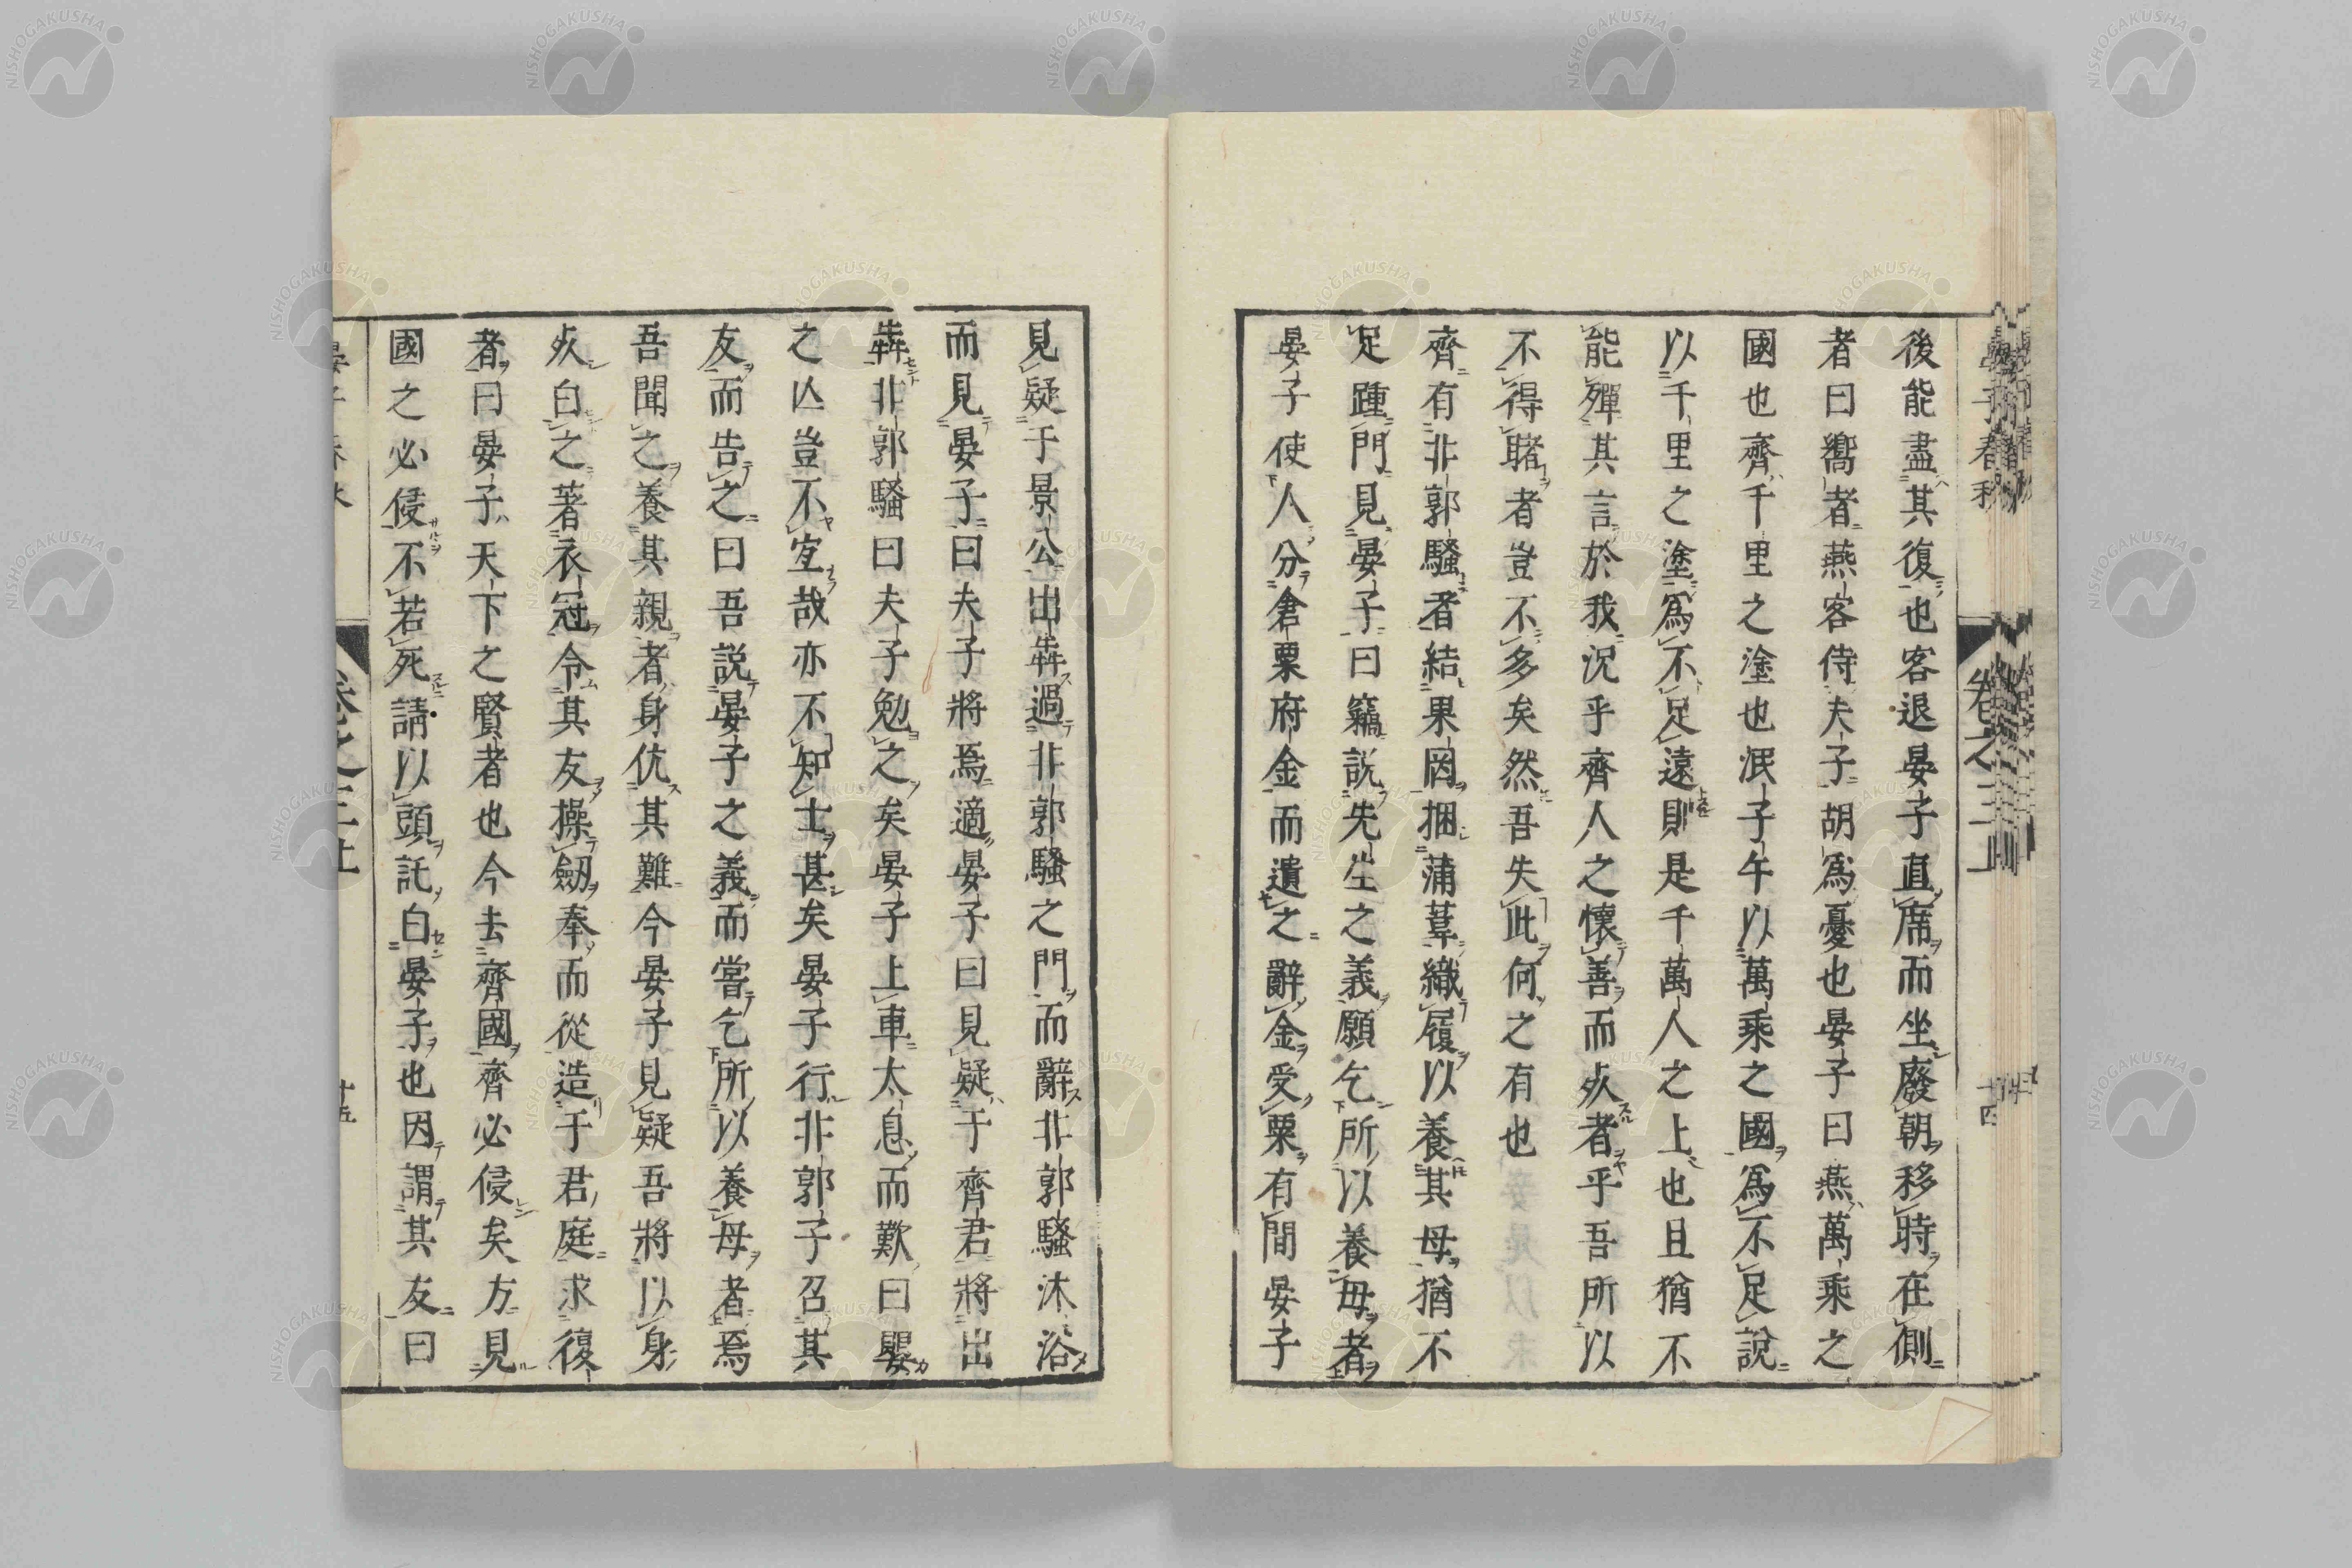 後能盡其復也客退晏子直席而坐廢朝移時在側
者曰嚮者燕客侍夫子胡爲憂也晏子曰燕萬乘之
國也齊千里之塗也泯子午以萬乘之國爲不足說
以千里之塗爲不足遠則是千萬人之上也且猶不
能殫其言於我況乎齊人之懷善而死者乎吾所以
不得睹者豈不多矣然吾失此何之有也
齊有北郭騷者結果罔捆蒲葦織履以養其母猶不
足踵門見晏子曰竊說先生之義願乞所以養母者
晏子使人分倉粟府金而遺之辭金受粟有間晏子
見疑于景公出犇過北郭騷之門而辭北郭騷沐浴
而見晏子曰夫子將焉適晏子曰見疑于齊君將出
犇北郭騷曰夫子勉之矣晏子上車太息而歎曰嬰
之亾豈不宜哉亦不知士甚矣晏子行北郭子召其
友而告之曰吾說晏子之義而嘗乞所以養母者焉
吾聞之養其親者身伉其難今晏子見疑吾將以身
死白之著衣冠令其友操劒奉而從造于君庭求復
者曰晏子天下之賢者也今去齊國齊必侵矣方見
國之必侵不若死請以頭託白晏子也因謂其友曰
晏子春秋
卷之三上
十五
NISHOGAKUSHA